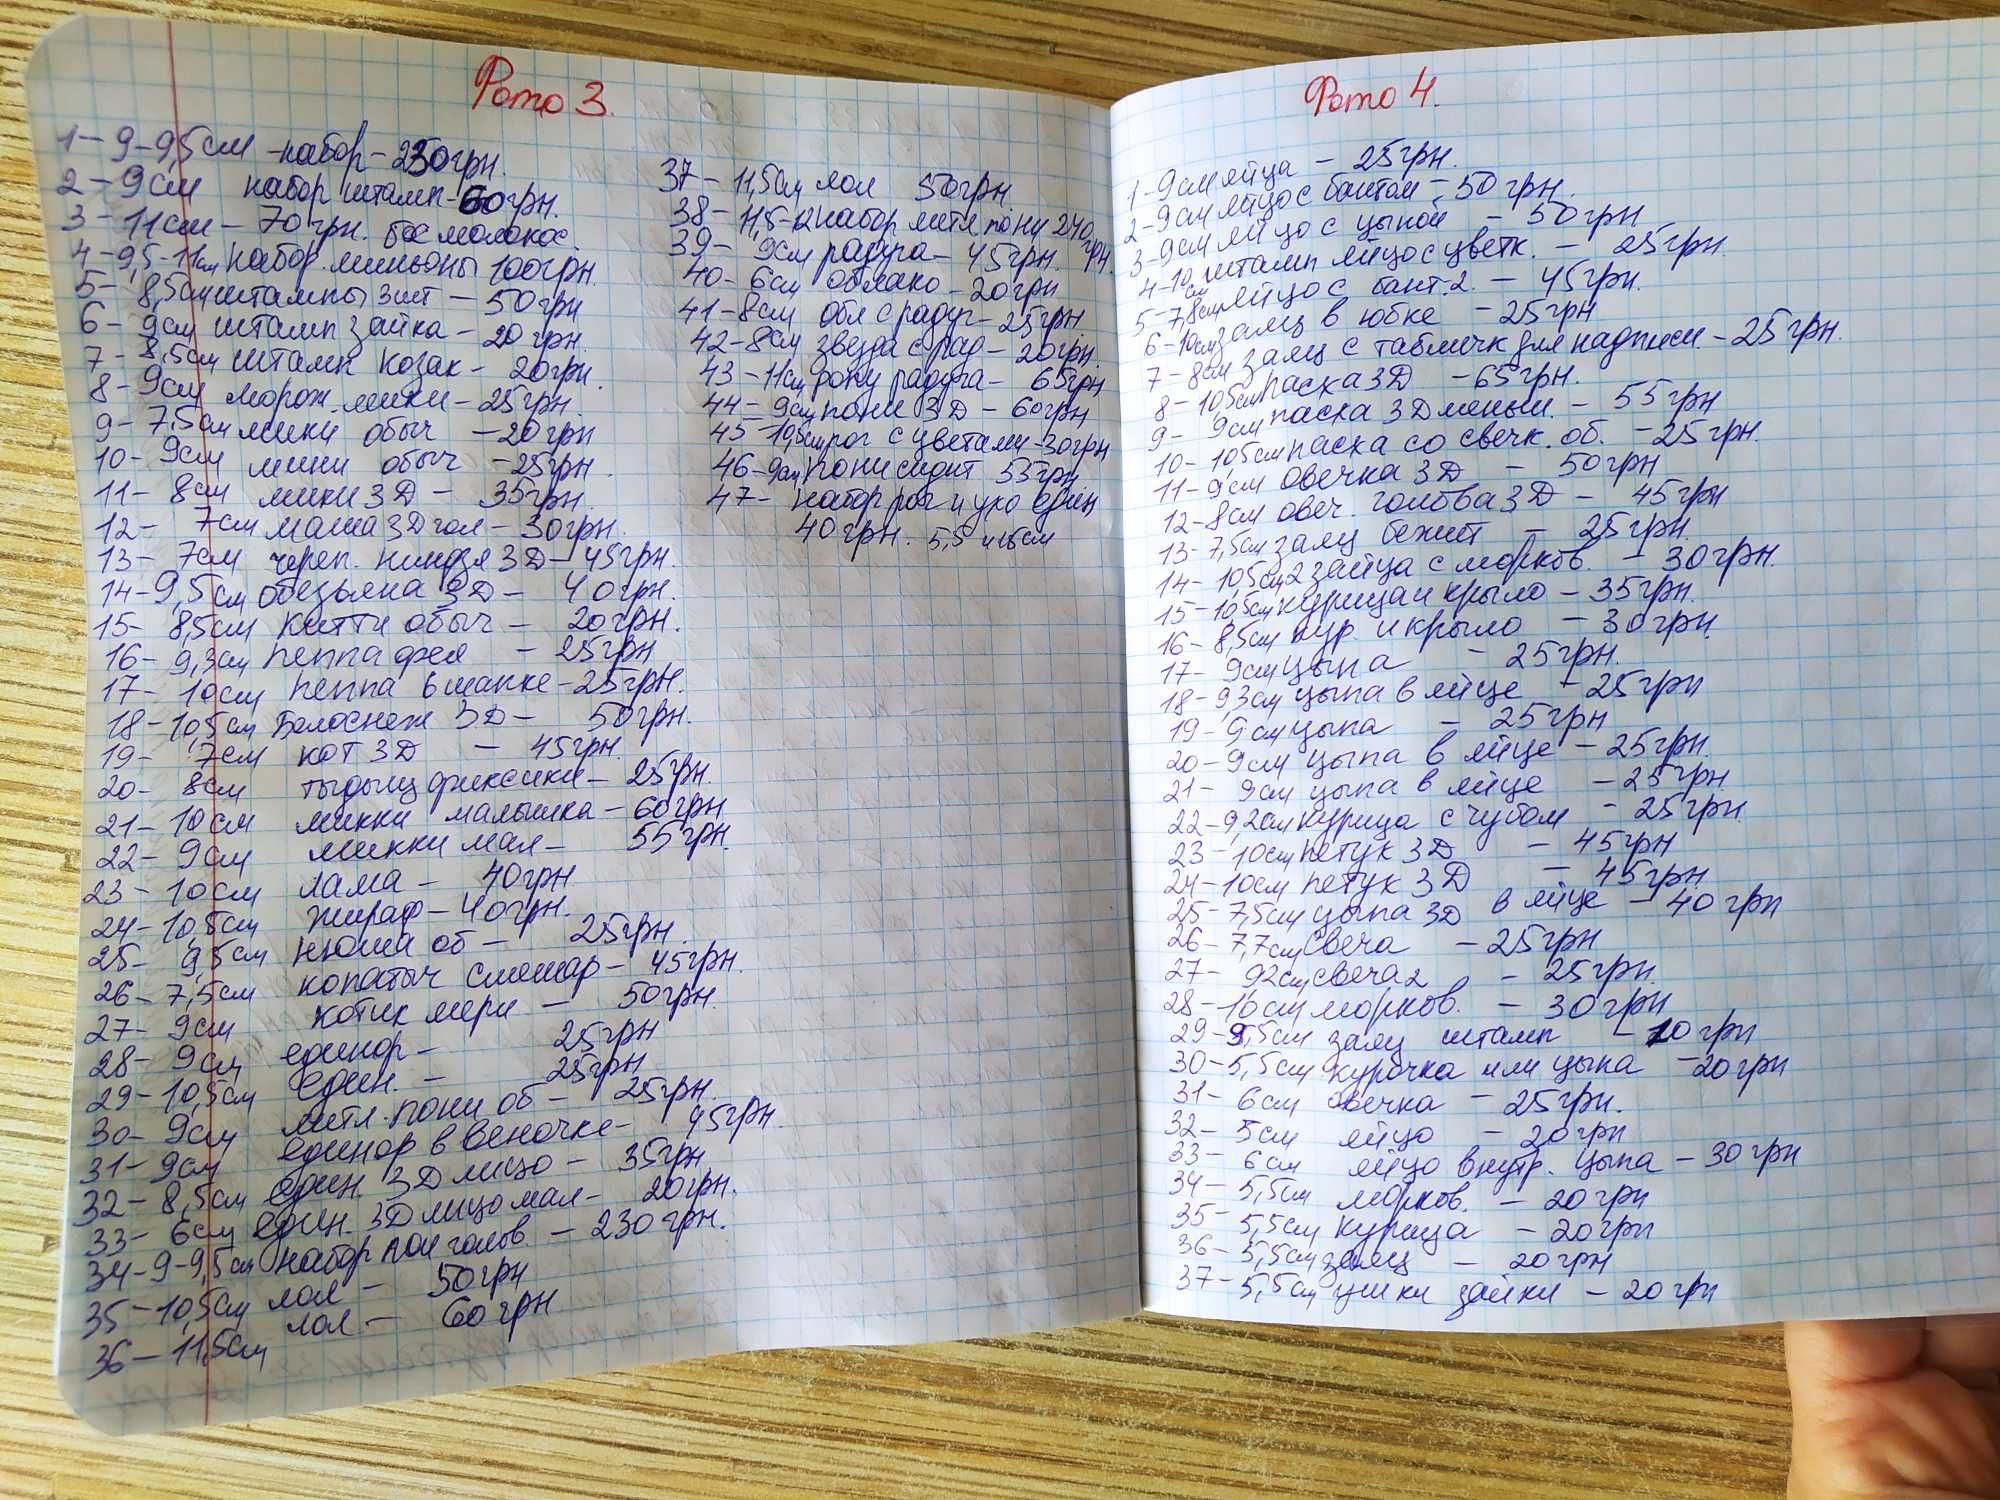 Фото 3.
1- 9-9,5см -набор- 230грн.
2- 9см набор штамп- 60грн.
3- 11см - 70грн. босс молокос.
4- 9,5-11см набор. миньоны 100грн.
5- 8,5см штампы 3шт - 50грн
6- 9см штамп зайка - 20грн.
7- 8,5см штамп козак - 20грн.
8- 9см морож. мики - 25грн.
9- 7,5см мики обыч - 20грн
10- 9см мини обыч - 25грн.
11- 8см мики 3Д - 35грн.
12- 7см маша 3Д гол - 30грн.
13- 7см череп. ниндзя 3Д - 45грн.
14- 9,5см обезьяна 3Д - 40грн.
15- 8,5см китти обыч - 20грн.
16- 9,3см пеппа фея - 25грн
17- 10см пеппа в шапке - 25грн.
18- 10,5см Белоснеж 3Д - 50грн.
19- 7см кот 3Д - 45грн.
20- 8см тыдыщ фиксики - 25грн.
21- 10см микки малышка - 60грн
22- 9см микки мал - 55грн.
23- 10см лама - 40грн
24- 10,5см жираф - 40грн.
25- 9,5см нюша об - 25грн.
26- 7,5см копатыч смешар - 45грн.
27- 9см котик мери - 50грн.
28- 9см единор - 25грн
29- 10,5см един. - 25грн
30- 9см литл. пони об - 25грн.
31- 9см единор в веночке - 45грн.
32- 8,5см един. 3Д лицо - 35грн
33- 6см един. 3Д лицо мал - 20грн.
34- 9-9,5см набор лол голов. - 230грн.
35- 10,5см лол - 50грн
36- 11,5см лол - 60грн
37- 11,5см лол 50грн.
38- 11,5-12 набор литл пони 240грн.
39- 9см радуга - 45грн.
40- 6см облако - 20грн
41- 8см обл с радуг - 25грн.
42- 8см звезда с рад - 20грн.
43- 11см пони радуга - 65грн
44- 9см пони 3Д - 60грн
45- 10,5см рог с цветами - 30грн
46- 9см пони сидит 55грн
47- набор рог и ухо един
40грн. 5,5 и 6см
Фото 4.
1- 9см яйца - 25грн.
2- 9см яйцо с бантом - 50грн.
3- 9см яйцо с цыпой - 50грн
4- 10см штамп яйцо с цветк. - 25грн.
5- 7,8см яйцо с бант. 2. - 45грн.
6- 10см заяц в юбке - 25грн
7- 8см заяц с табличк для надписи - 25грн.
8- 10,5см паска 3Д - 65грн.
9- 9см паска 3Д меньш. - 55грн
10- 10,5см паска со свечк. об. - 25грн.
11- 9см овечка 3Д - 50грн
12- 8см овеч. голова 3Д - 45грн
13- 7,5см заяц бежит - 25грн.
14- 10,5см 2 зайца с морков. - 30грн.
15- 10,5см курица и крыло - 35грн.
16- 8,5см кур. и крыло - 30грн.
17- 9см цыпа - 25грн.
18- 9,3см цыпа в яйце - 25грн
19- 9см цыпа - 25грн
20- 9см цыпа в яйце - 25грн.
21- 9см цыпа в яйце - 25грн.
22- 9,2см курица с чубом - 25грн.
23- 10см петух 3Д - 45грн
24- 10см петух 3Д - 45грн
25- 7,5см цыпа 3Д в яйце - 40грн
26- 7,7см свеча - 25грн
27- 9,2см свеча 2 - 25грн.
28- 10см морков. - 30грн
29- 5,5см заяц штамп - 20грн
30- 5,5см курочка или цыпа - 20грн
31- 6см овечка - 25грн.
32- 5см яйцо - 20грн
33- 6см яйцо внутр. цыпа - 30грн
34- 5,5см морков. - 20грн
35- 5,5см курица - 20грн
36- 5,5см заяц - 20грн
37- 5,5см ушки зайки - 20грн